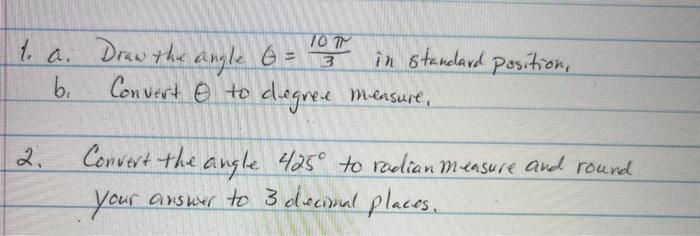 1. a. Draw the angle θ = 10π/3 in standard position.
b. Convert θ to degree measure.
2. Convert the angle 425° to radian measure and round
your answer to 3 decimal places.